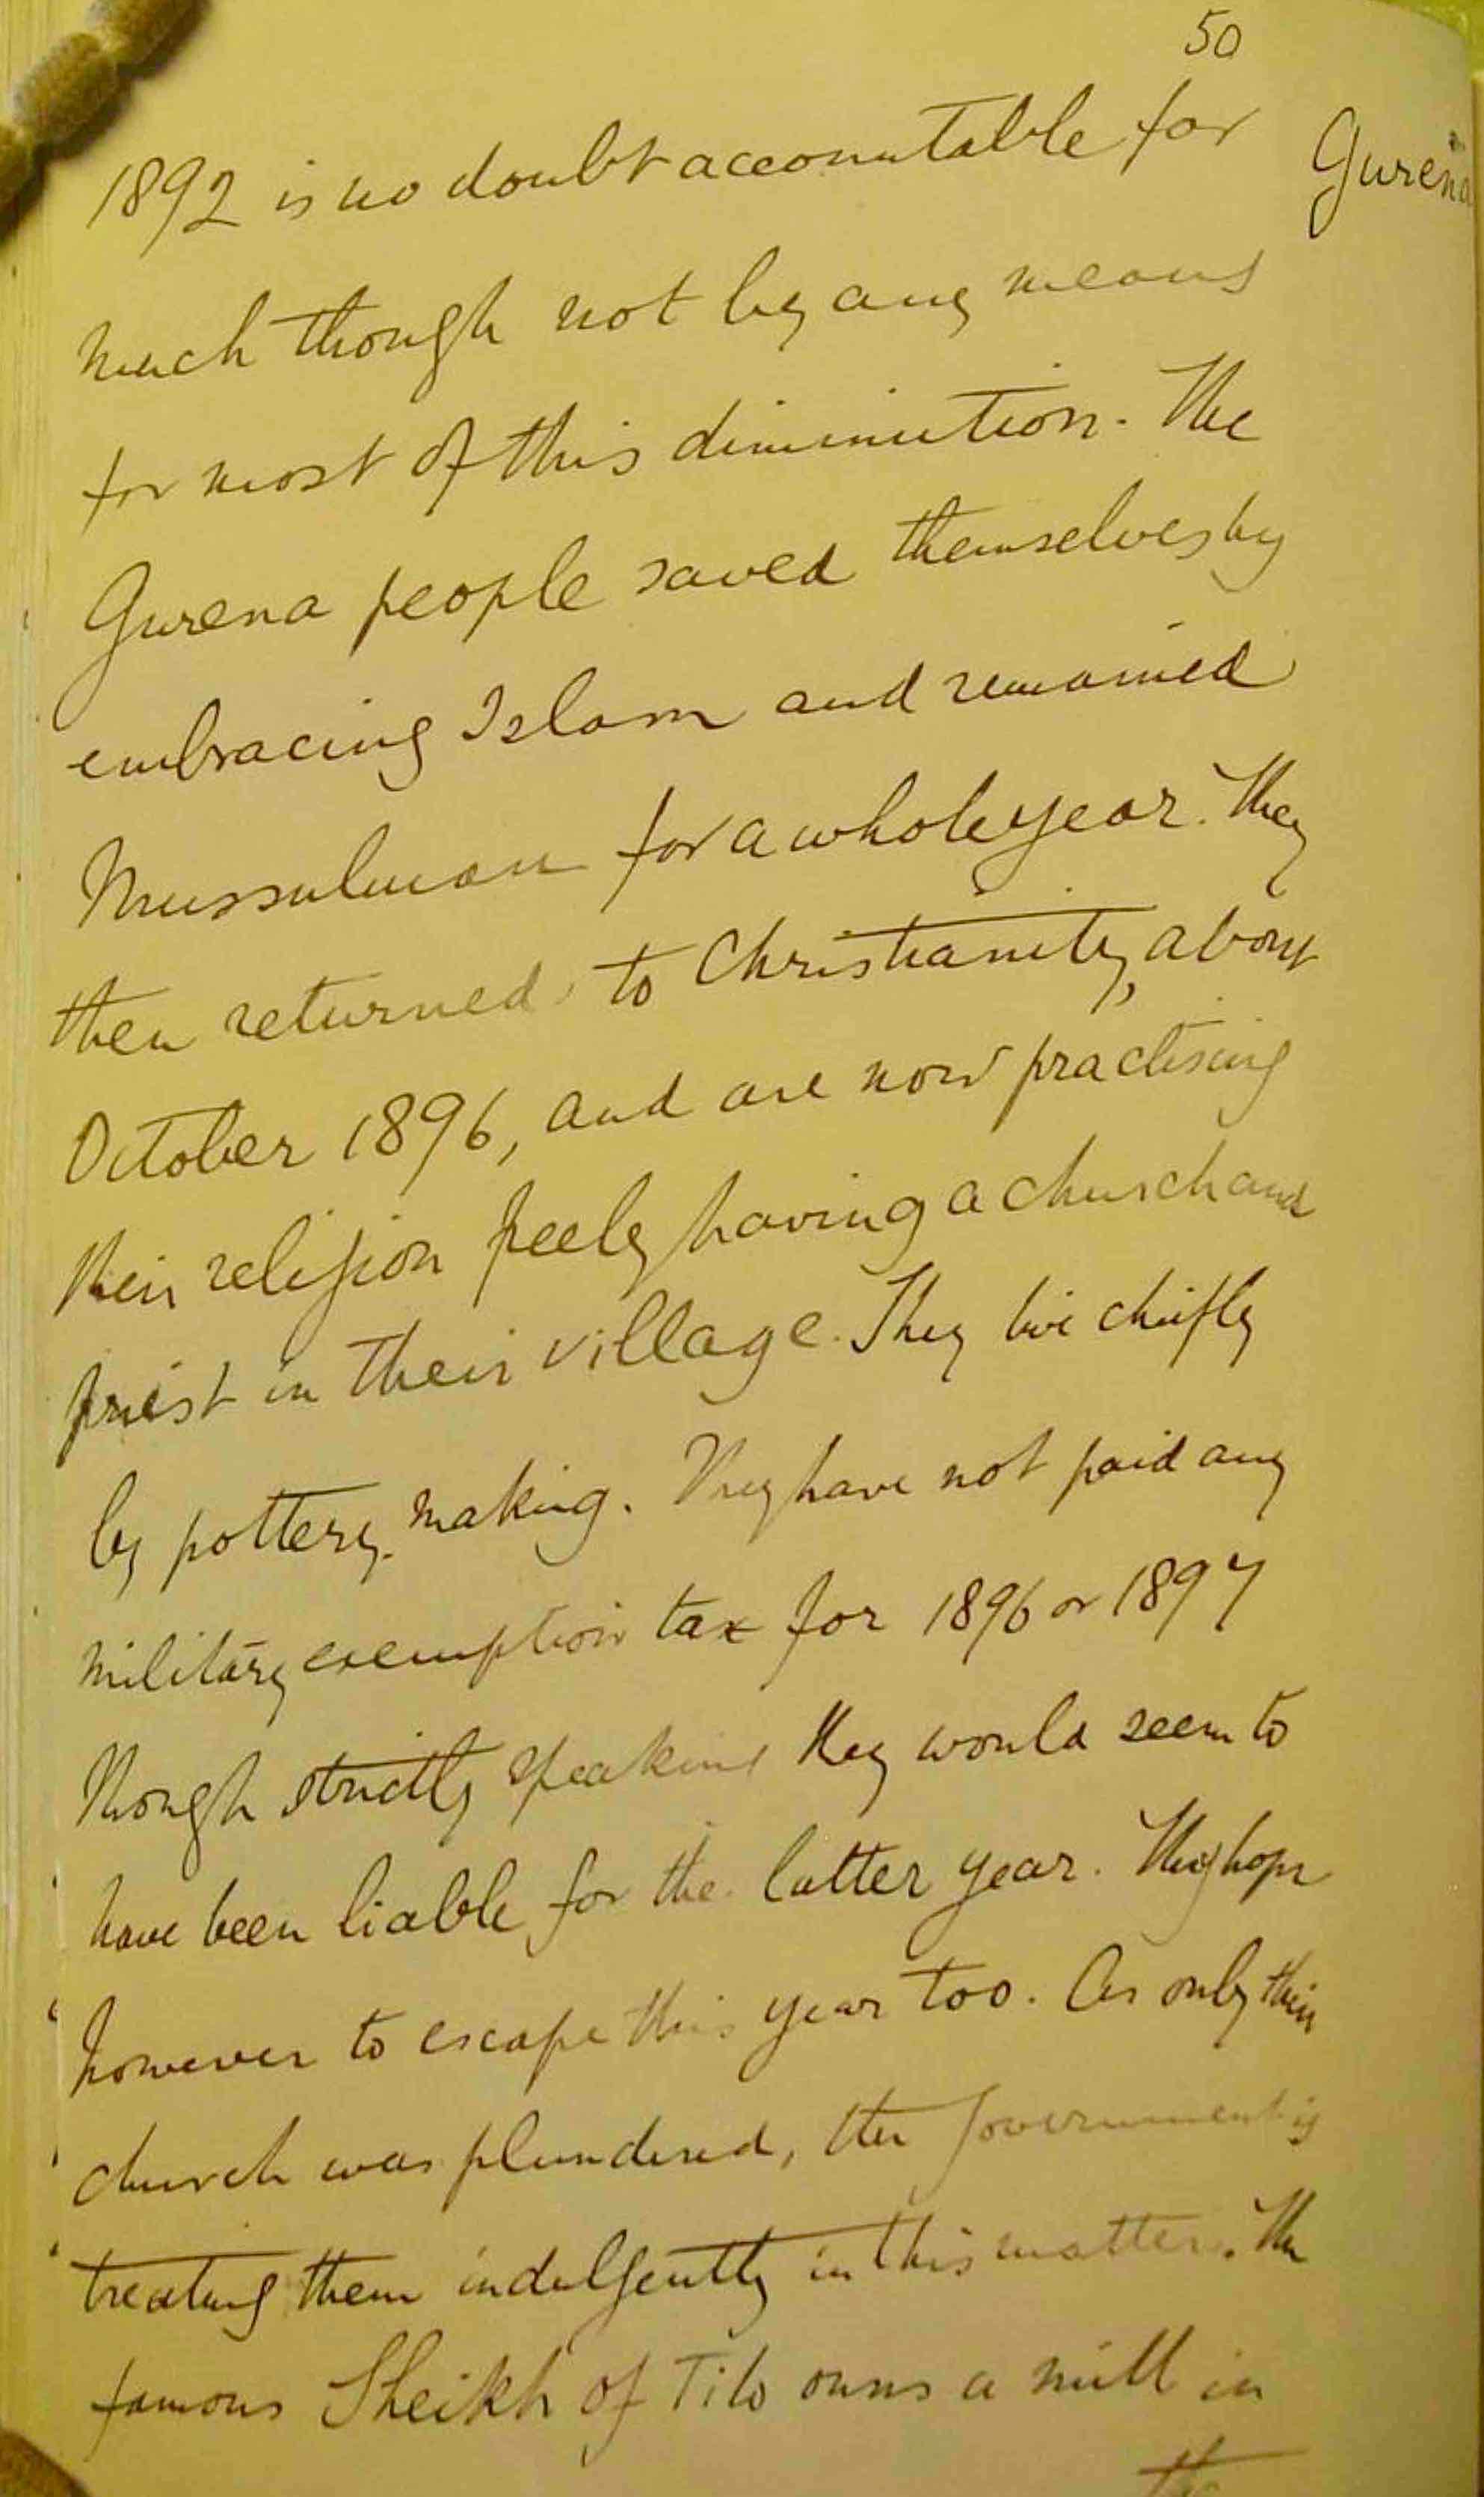 50
Gurena
1892 is no doubt accountable for
much though not by any means
for most of this diminution. The
Gurena people saved themselves by
embracing Islam and remained
Mussulman for a whole year. They
then returned to Christianity, about
October 1896, and are now practising
their religion freely having a church and
priest in their village. They live chiefly
by pottery-making. They have not paid any
military exemption tax for 1896 or 1897
though strictly speaking they would seem to
have been liable for the latter year. They hope
however to escape this year too. As only their
church was plundered, the Government is
treating them indulgently in this matter. The
famous Sheikh of Tilo owns a mill in
the